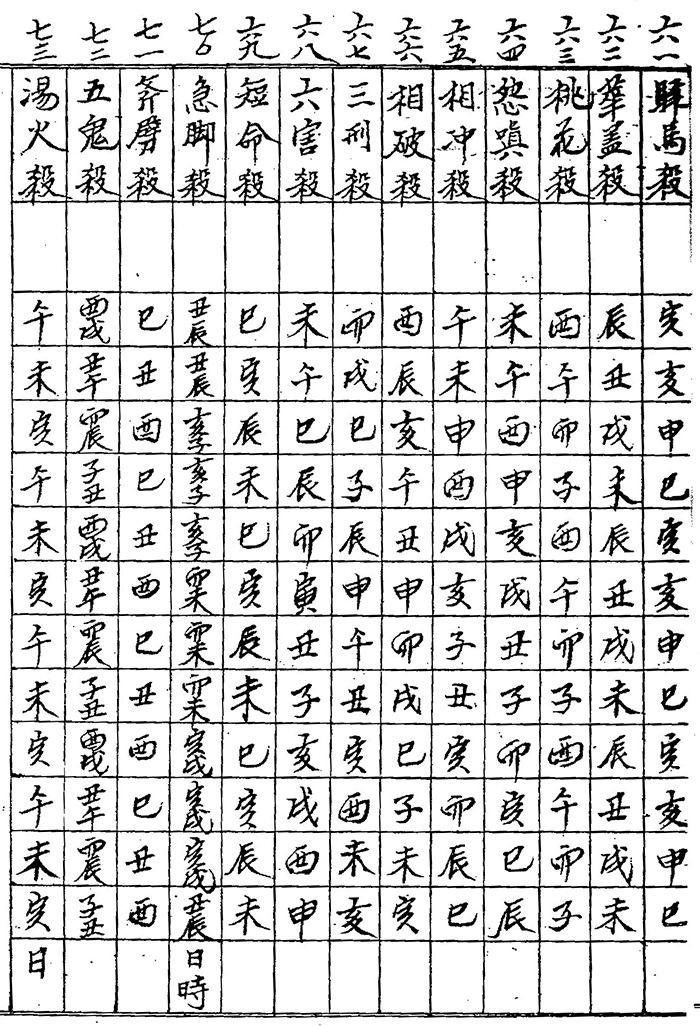 六一 驛馬殺 寅 亥 申 巳 寅 亥 申 巳 寅 亥 申 巳
六二 華盖殺 辰 丑 戌 未 辰 丑 戌 未 辰 丑 戌 未
六三 桃花殺 酉 午 卯 子 酉 午 卯 子 酉 午 卯 子
六四 怨嗔殺 未 午 酉 申 亥 戌 丑 子 卯 寅 巳 辰
六五 相冲殺 午 未 申 酉 戌 亥 子 丑 寅 卯 辰 巳
六六 相破殺 酉 辰 亥 午 丑 申 卯 戌 巳 子 未 寅
六七 三刑殺 卯 戌 巳 子 辰 申 午 丑 寅 酉 未 亥
六八 六害殺 未 午 巳 辰 卯 寅 丑 子 亥 戌 酉 申
六九 短命殺 巳 寅 辰 未 巳 寅 辰 未 巳 寅 辰 未
七〇 急脚殺 丑辰 丑辰 亥子 亥子 亥子 卯未 卯未 卯未 寅戌 寅戌 寅戌 丑辰 日時
七一 斧劈殺 巳 丑 酉 巳 丑 酉 巳 丑 酉 巳 丑 酉
七二 五鬼殺 酉戌 丑午 卯辰 子丑 酉戌 丑午 卯辰 子丑 酉戌 丑午 卯辰 子丑
七三 湯火殺 午 未 寅 午 未 寅 午 未 寅 午 未 寅 日